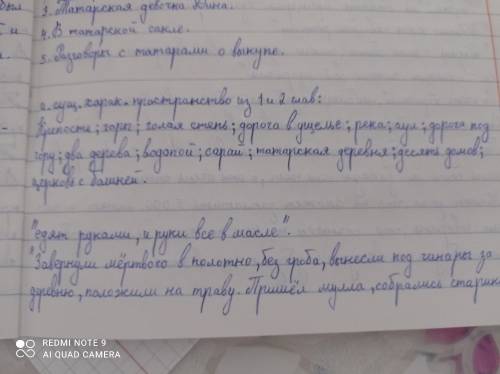 был
3. Татарская девочка Дина.
4. В татарской сакле.
и
5. Разговоры с татарами о выкупе.
а. сущ. харак. пространство из 1 и 2 глав:
Крепость; горы; голая степь; дорога в ущелье; река; аул; дорога под
гору; два дерева; водопой; сарай; татарская деревня; десять домов;
церковь с башней.
"едят руками, и руки все в масле".
"Завернули мёртвого в полотно, без гроба, вынесли под чинары за
деревню, положили на траву. Пришёл мулла, собрались старик
REDMI NOTE 9
AI QUAD CAMERA